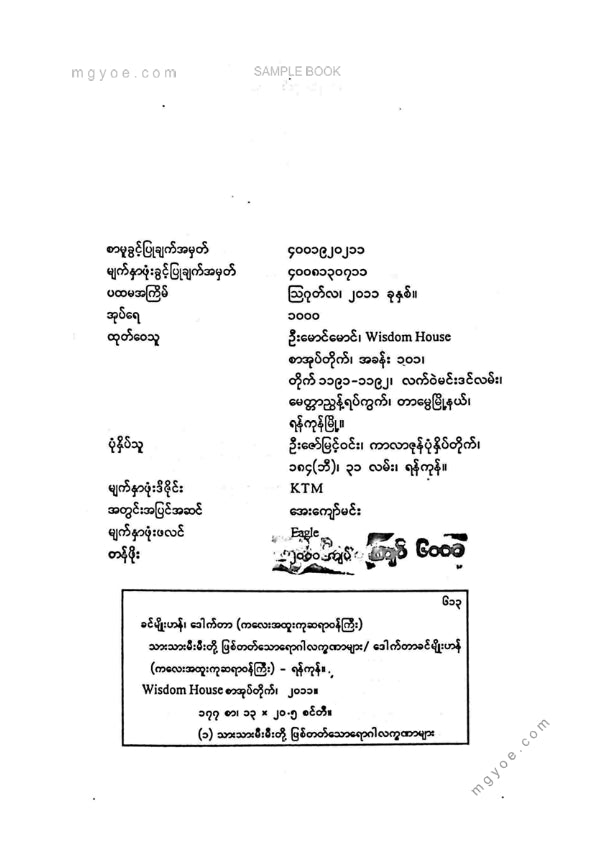 mgyoe.com
SAMPLE BOOK
စာမူခွင့်ပြုချက်အမှတ် ၄၀၀၁၉၂၀၂၁၁
မျက်နှာဖုံးခွင့်ပြုချက်အမှတ် ၄၀၀၈၁၃၀၇၁၁
ပထမအကြိမ် ဩဂုတ်လ၊ ၂၀၁၁ ခုနှစ်။
အုပ်ရေ ၁၀၀၀
ထုတ်ဝေသူ ဦးမောင်မောင်၊ Wisdom House
စာအုပ်တိုက်၊ အခန်း ၁၃၁၊
တိုက် ၁၁၉၁-၁၁၉၂၊ လက်ဝဲမင်းဒင်လမ်း၊
မေတ္တာညွန့်ရပ်ကွက်၊ တာမွေမြို့နယ်၊
ရန်ကုန်မြို့။
ပုံနှိပ်သူ ဦးဇော်မြင့်ဝင်း၊ ကာလာဇုန်ပုံနှိပ်တိုက်၊
၁၈၄(ဘီ)၊ ၃၁ လမ်း၊ ရန်ကုန်။
မျက်နှာဖုံးဒီဇိုင်း KTM
အတွင်းအပြင်အဆင် အေးကျော်မင်း
မျက်နှာဖုံးဖလင် Eagle
တန်ဖိုး ကျပ် ၆၀၀၀
၆၁၃
ခင်မျိုးဟန်၊ ဒေါက်တာ (ကလေးအထူးကုဆရာဝန်ကြီး)
သားသားမီးမီးတို့ ဖြစ်တတ်သောရောဂါလက္ခဏာများ/ ဒေါက်တာခင်မျိုးဟန်
(ကလေးအထူးကုဆရာဝန်ကြီး) - ရန်ကုန်။
Wisdom House စာအုပ်တိုက်၊ ၂၀၁၁။
၁၇၇ စာ၊ ၁၃ × ၂၀.၅ စင်တီ။
(၁) သားသားမီးမီးတို့ ဖြစ်တတ်သောရောဂါလက္ခဏာများ
mgyoe.com